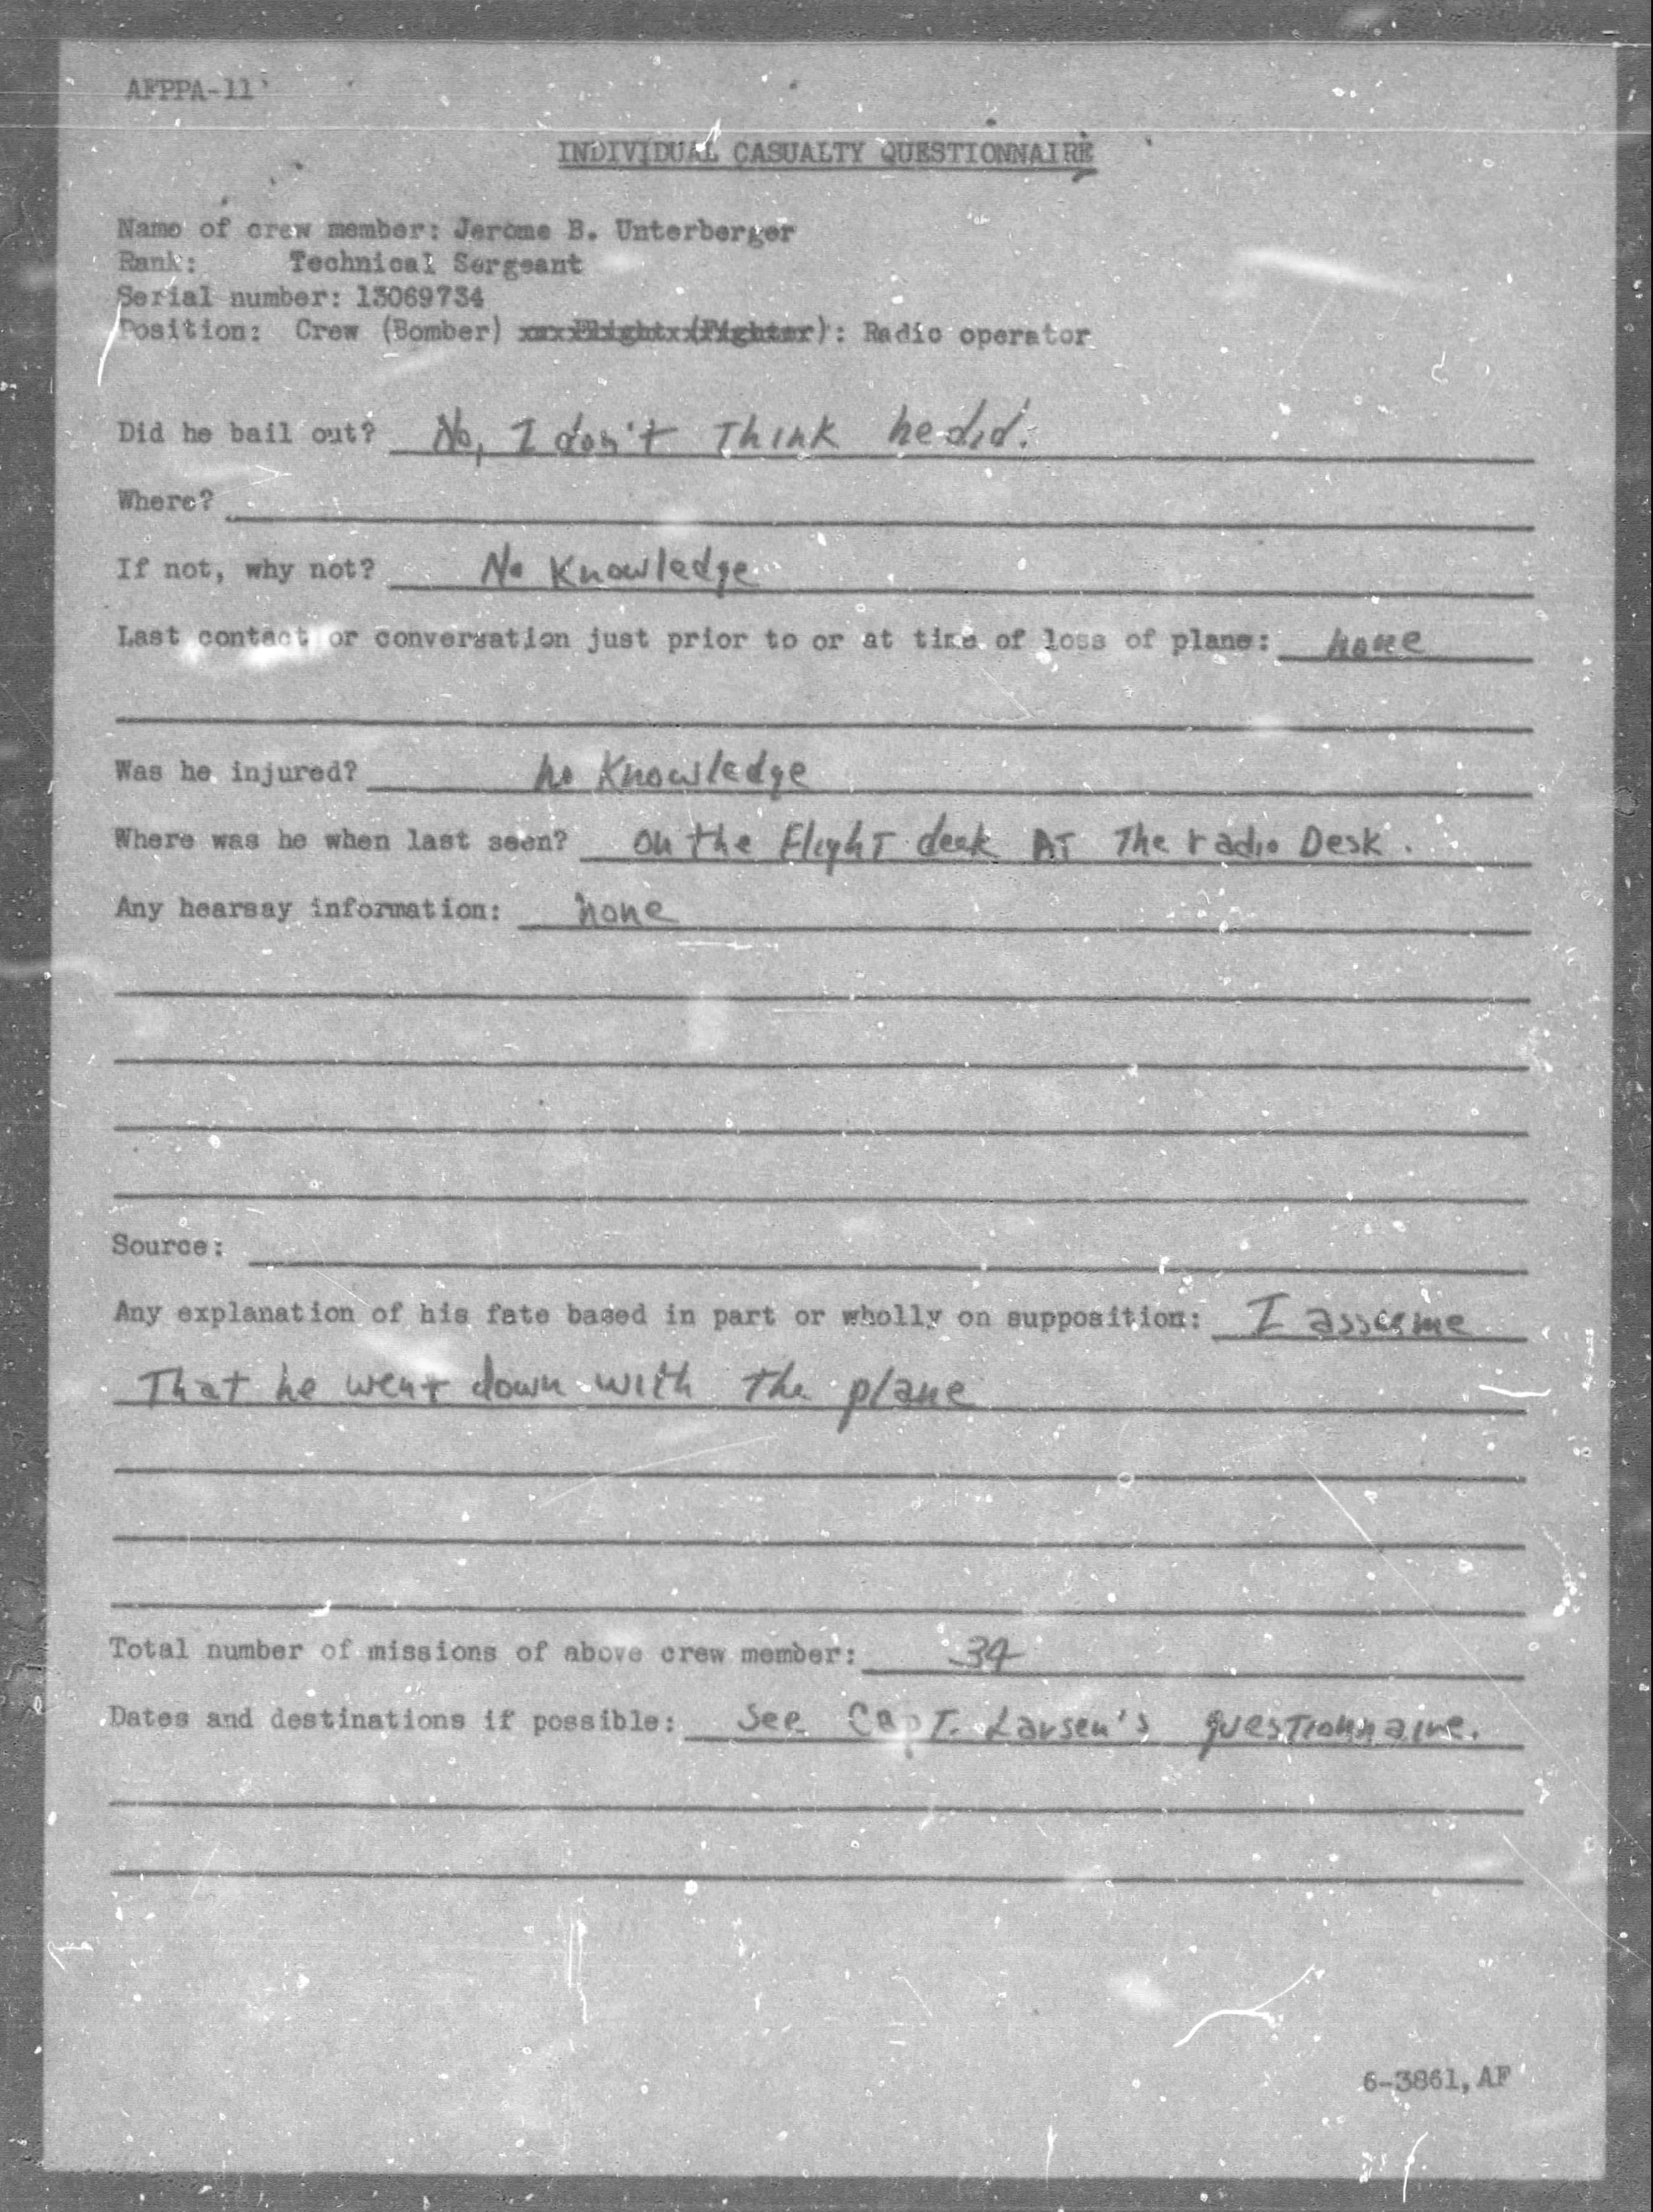 AFPPA-11
INDIVIDUAL CASUALTY QUESTIONNAIRE
Name of crew member: Jerome B. Unterberger
Rank: Technical Sergeant
Serial number: 13069734
Position: Crew (Bomber) xxx Flight x (Fighter): Radio operator
Did he bail out? No, I don't Think he did.
Where?
If not, why not? No Knowledge
Last contact or conversation just prior to or at time of loss of plane: none
Was he injured? no Knowledge
Where was he when last seen? on the FlighT deck AT The radio Desk.
Any hearsay information: none
Source:
Any explanation of his fate based in part or wholly on supposition: I assume
That he went down with the plane
Total number of missions of above crew member: 34
Dates and destinations if possible: See CapT. Larsen's questionnaire.
6-3861, AF